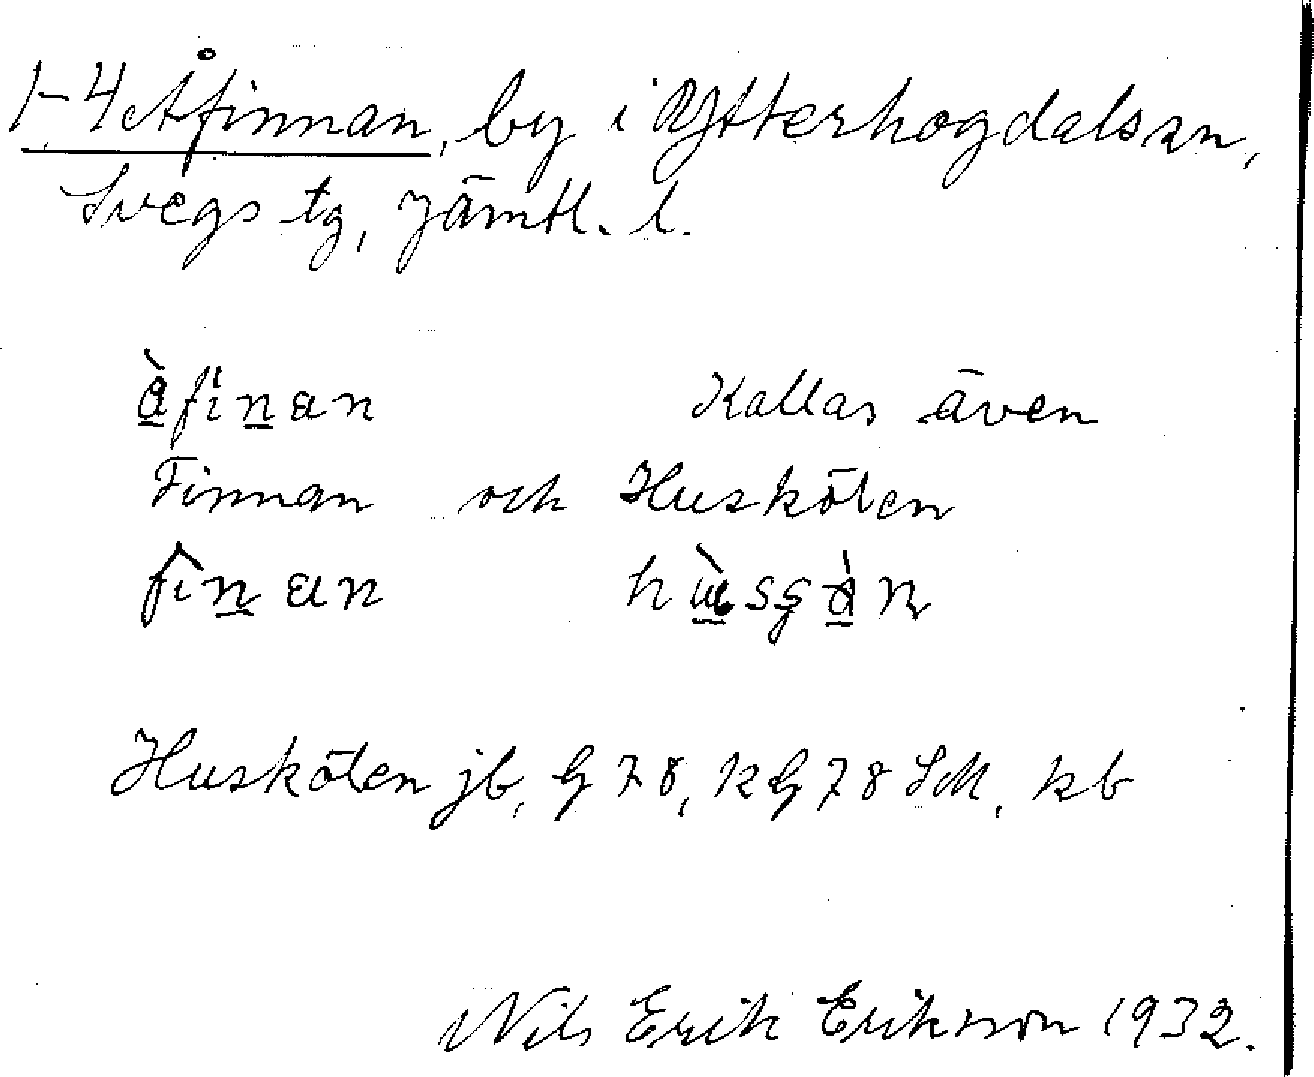 1-4 Åfinnan, by i Ytterhogdals sn,
Svegs tg, Jämtl. l.
å̀finan Kallas även
Finnan och Huskölen
fìnan
Huskölen jb, G 78, kG 78 SM, kb
Nils Erik Erikson 1932.